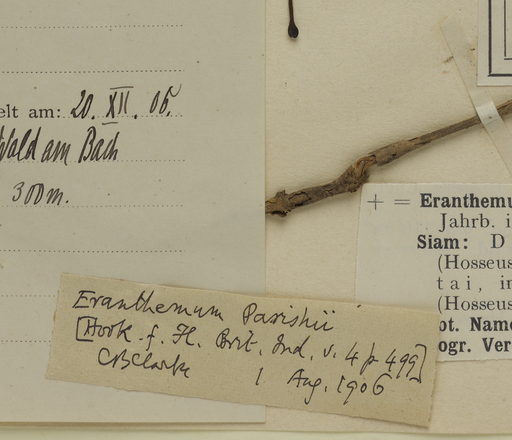 elt am: 20. XII. 05.
Wald am Bach
300 m.
+ = Eranthemu
Jahrb. i
Siam: D
(Hosseus
tai, in
(Hosseus
ot. Name
ogr. Ver
Eranthemum Parishii
[Hook. f. Fl. Brit. Ind. v. 4 p 499]
CBClarke 1 Aug. 1906